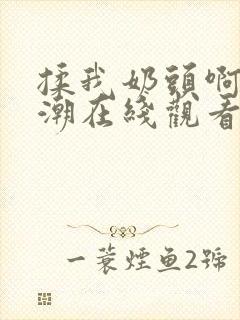 揉我奶頭啊
潮在綫觀看
一蓑煙鱼2號